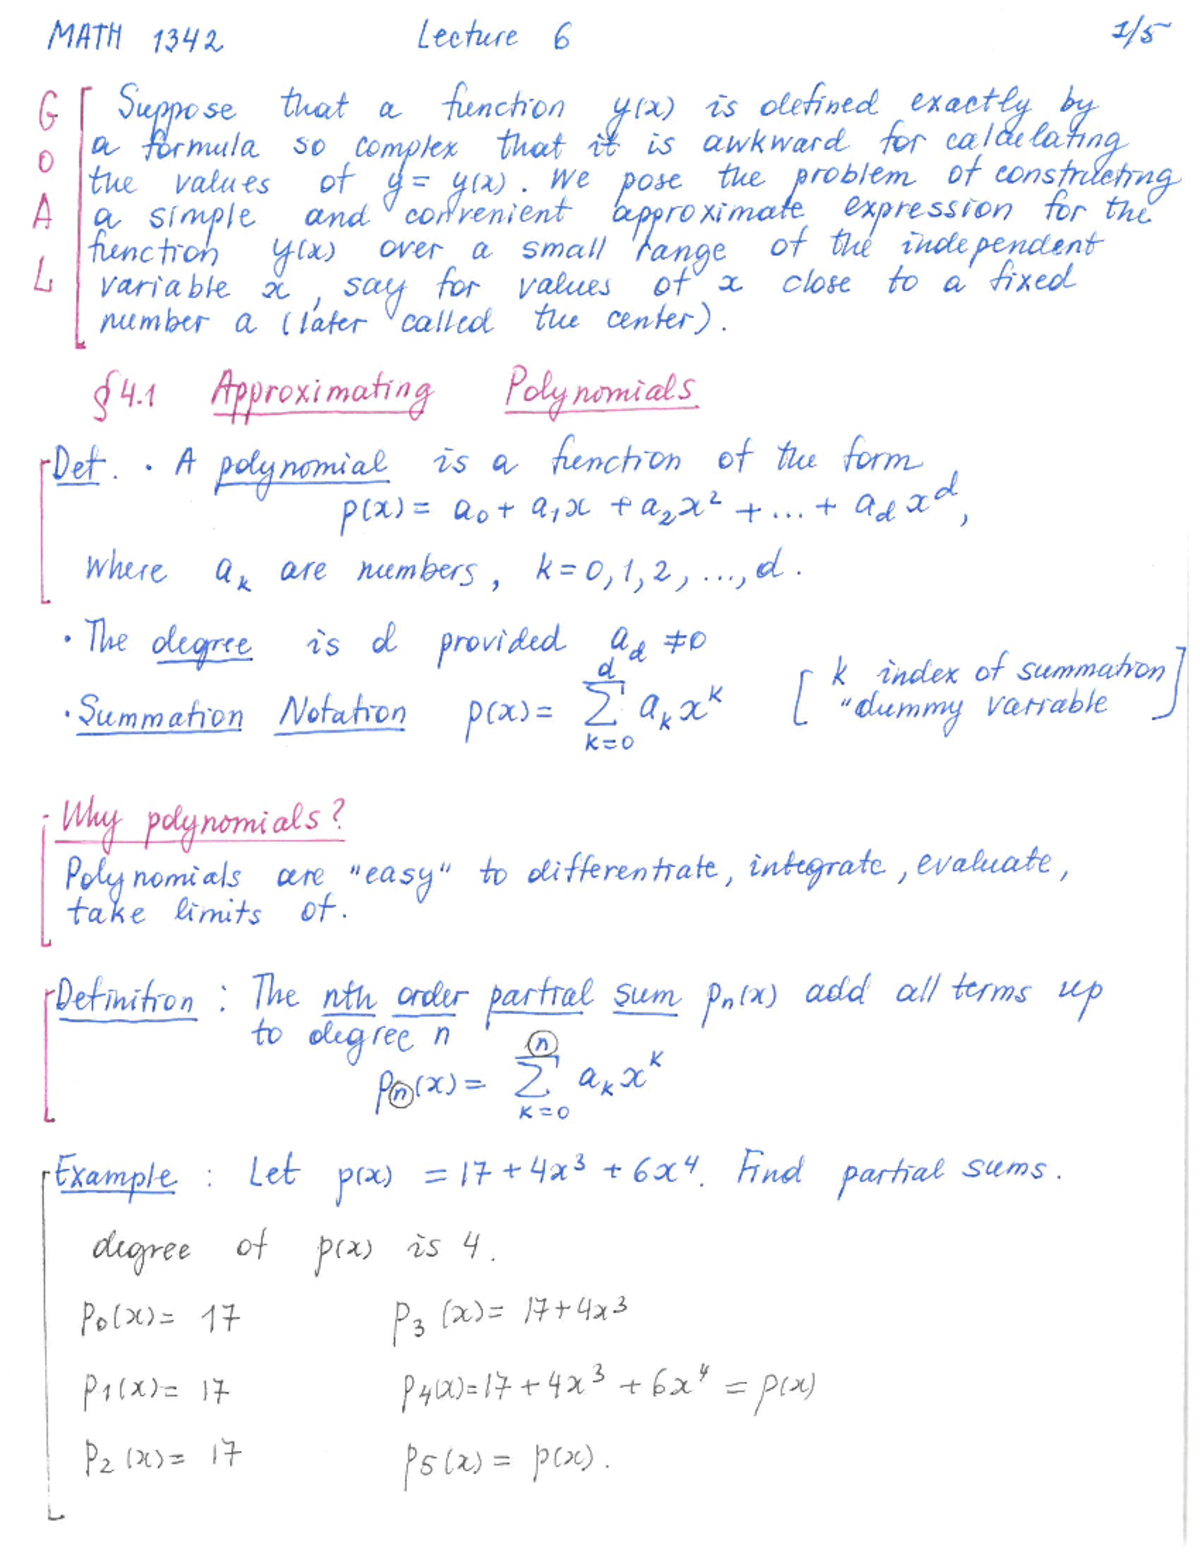 MATH 1342 Lecture 6 1/5
GOAL
Suppose that a function y(x) is defined exactly by
a formula so complex that it is awkward for calculating
the values of y = y(x). We pose the problem of constructing
a simple and convenient approximate expression for the
function y(x) over a small range of the independent
variable x, say for values of x close to a fixed
number a (later called the center).
§4.1 Approximating Polynomials
Def. • A polynomial is a function of the form
p(x) = a₀ + a₁x + a₂x² + ... + a_d x^d,
where a_k are numbers, k = 0, 1, 2, ..., d.
• The degree is d provided a_d ≠ 0
• Summation Notation p(x) = ∑_{k=0}^{d} a_k x^k [k index of summation
"dummy variable]
Why polynomials?
Polynomials are "easy" to differentiate, integrate, evaluate,
take limits of.
Definition: The nth order partial sum pₙ(x) add all terms up
to degree n
pₙ(x) = ∑_{k=0}^{n} a_k x^k
Example: Let p(x) = 17 + 4x³ + 6x⁴. Find partial sums.
degree of p(x) is 4.
p₀(x) = 17 p₃(x) = 17 + 4x³
p₁(x) = 17 p₄(x) = 17 + 4x³ + 6x⁴ = p(x)
p₂(x) = 17 p₅(x) = p(x).